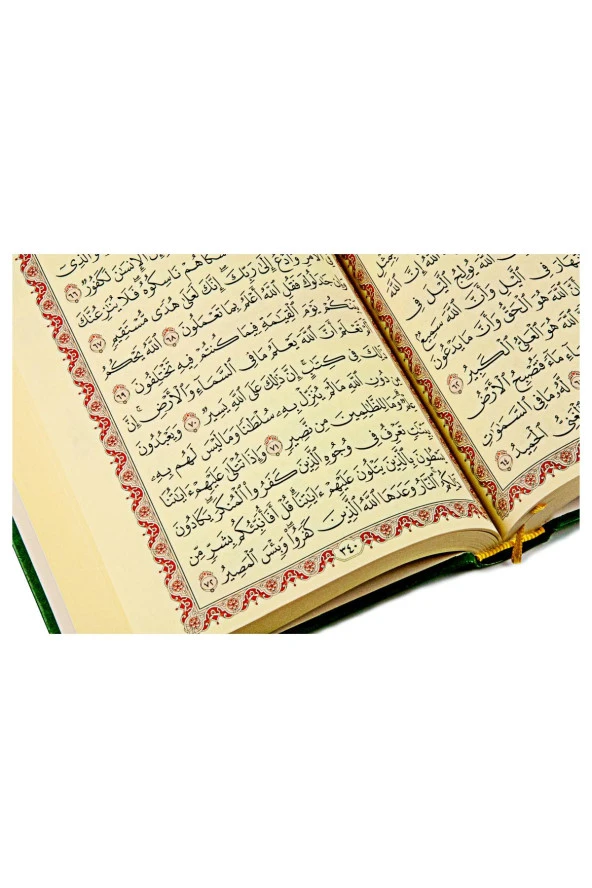 ٱللَّهُ إِنَّ ٱللَّهَ
ٱللَّهَ يُولِجُ ٱلَّيۡلَ فِى
فِى ٱلَّيۡلِ وَأَنَّ ٱللَّهَ سَمِيعٌۢ
ٱللَّهَ هُوَ ٱلۡحَقُّ وَأَنَّ مَا يَدۡعُونَ
ٱللَّهَ هُوَ ٱلۡعَلِىُّ ٱلۡكَبِيرُ ٦٢
مَآءً فَتُصۡبِحُ ٱلۡأَرۡضُ
مَا فِى ٱلسَّمَٰوَٰتِ
ٱلۡحَمِيدُ ٦٤
وَٱلَّذِىٓ
إِنَّ ٱلۡإِنسَٰنَ لَكَفُورٌ ٦٦
هُمۡ نَاسِكُوهُ فَلَا يُنَٰزِعُنَّكَ
ٱلۡأَمۡرِ وَٱدۡعُ إِلَىٰ رَبِّكَ إِنَّكَ لَعَلَىٰ هُدًى مُّسۡتَقِيمٍ ٦٧
وَإِن جَٰدَلُوكَ فَقُلِ ٱللَّهُ أَعۡلَمُ بِمَا تَعۡمَلُونَ ٦٨ ٱللَّهُ يَحۡكُمُ
بَيۡنَكُمۡ يَوۡمَ ٱلۡقِيَٰمَةِ فِيمَا كُنتُمۡ فِيهِ تَخۡتَلِفُونَ ٦٩
تَعۡلَمۡ أَنَّ ٱللَّهَ يَعۡلَمُ مَا فِى ٱلسَّمَآءِ وَٱلۡأَرۡضِ إِنَّ
ذَٰلِكَ فِى كِتَٰبٍ إِنَّ ذَٰلِكَ عَلَى ٱللَّهِ يَسِيرٌ ٧٠ وَيَعۡبُدُونَ
مِن دُونِ ٱللَّهِ مَا لَمۡ يُنَزِّلۡ بِهِۦ سُلۡطَٰنًا وَمَا لَيۡسَ لَهُم بِهِۦ
عِلۡمٌ وَمَا لِلظَّٰلِمِينَ مِن نَّصِيرٍ ٧١ وَإِذَا تُتۡلَىٰ عَلَيۡهِمۡ ءَايَٰتُنَا
بَيِّنَٰتٍ تَعۡرِفُ فِى وُجُوهِ ٱلَّذِينَ كَفَرُوا۟ ٱلۡمُنكَرَ يَكَادُونَ
يَسۡطُونَ بِٱلَّذِينَ يَتۡلُونَ عَلَيۡهِمۡ ءَايَٰتِنَا قُلۡ أَفَأُنَبِّئُكُم بِشَرٍّ مِّن
ذَٰلِكُمُ ٱلنَّارُ وَعَدَهَا ٱللَّهُ ٱلَّذِينَ كَفَرُوا۟ وَبِئۡسَ ٱلۡمَصِيرُ ٧٢
٣٤٠